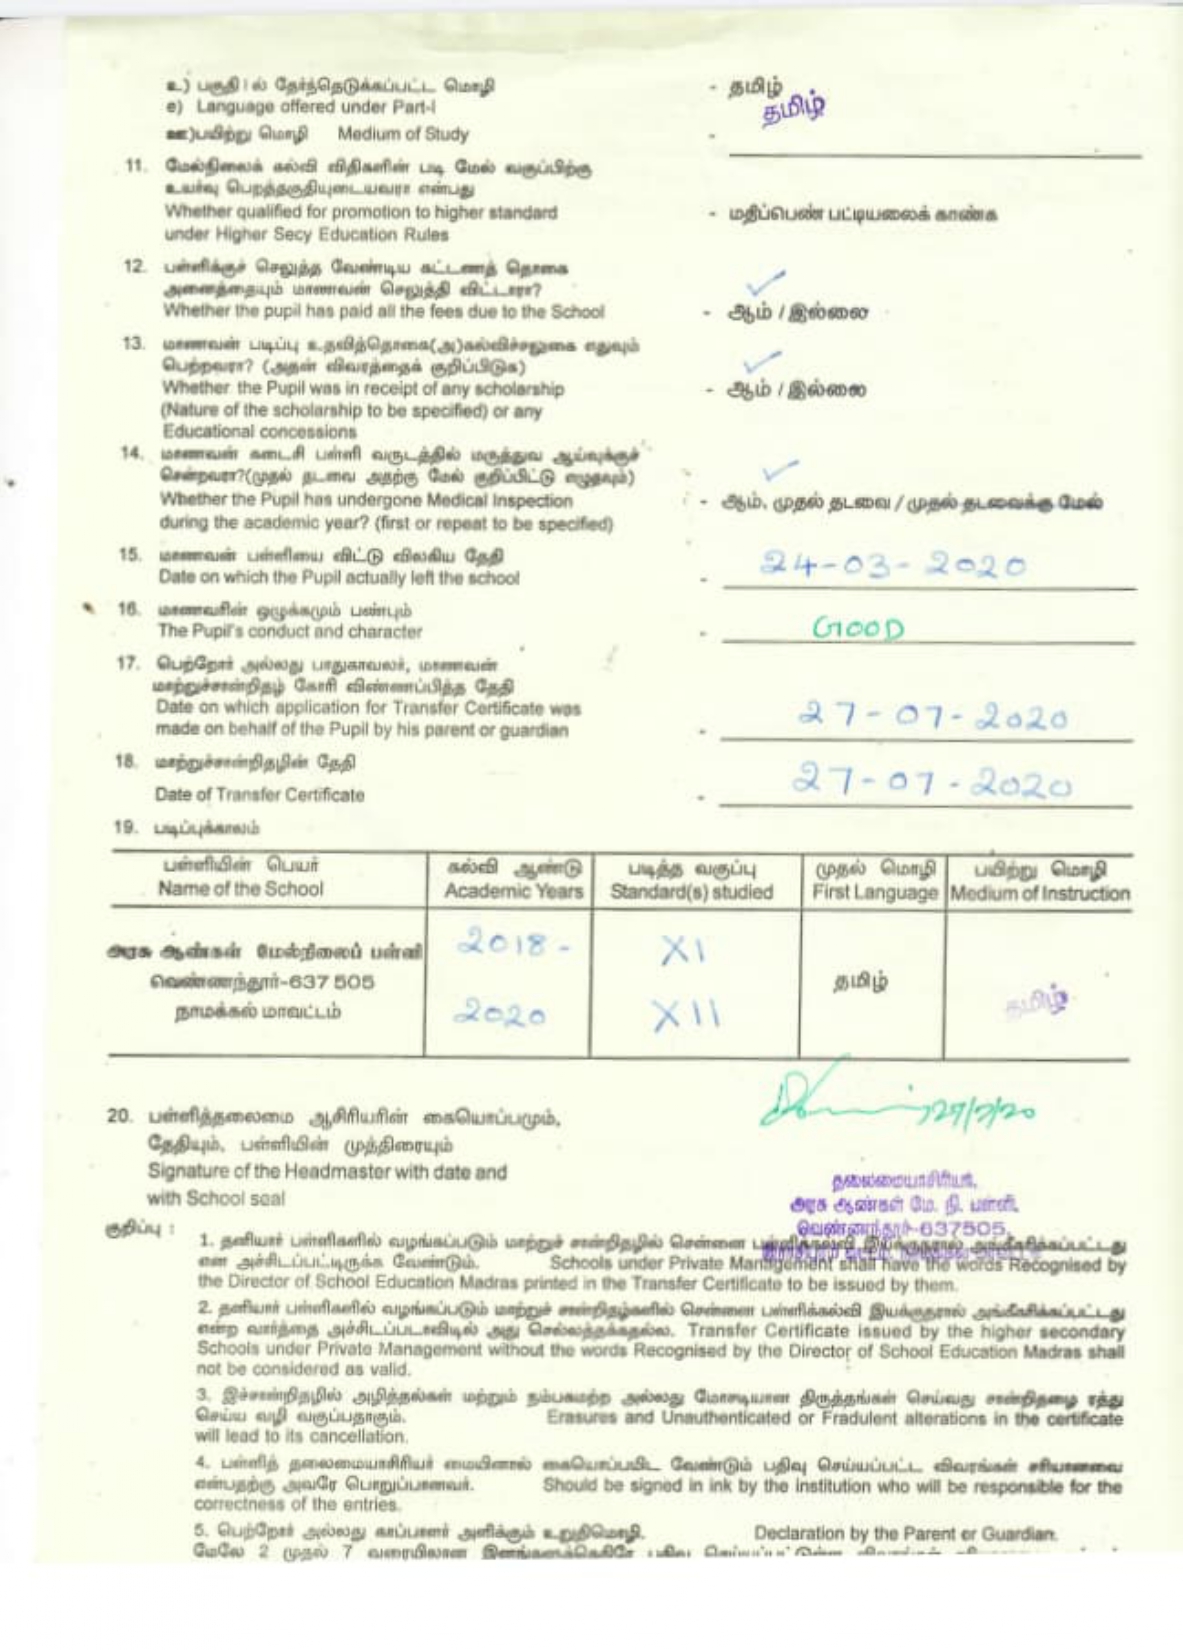 உ) பகுதி I ல் தேர்ந்தெடுக்கப்பட்ட மொழி - தமிழ்
e) Language offered under Part-I தமிழ்
ஊ)பயிற்று மொழி Medium of Study -
11. மேல்நிலைக் கல்வி விதிகளின் படி மேல் வகுப்பிற்கு
உயர்வு பெறத்தகுதியுடையவரா என்பது
Whether qualified for promotion to higher standard - மதிப்பெண் பட்டியலைக் காண்க
under Higher Secy Education Rules
12. பள்ளிக்குச் செலுத்த வேண்டிய கட்டணத் தொகை
அனைத்தையும் மாணவன் செலுத்தி விட்டாரா?
Whether the pupil has paid all the fees due to the School - ஆம் / இல்லை
13. மாணவன் படிப்பு உதவித்தொகை(அ)கல்விச்சலுகை எதுவும்
பெற்றவரா? (அதன் விவரத்தைக் குறிப்பிடுக)
Whether the Pupil was in receipt of any scholarship - ஆம் / இல்லை
(Nature of the scholarship to be specified) or any
Educational concessions
14. மாணவன் கடைசி பள்ளி வருடத்தில் மருத்துவ ஆய்வுக்குச்
சென்றவரா?(முதல் தடவை அதற்கு மேல் குறிப்பிட்டு எழுதவும்)
Whether the Pupil has undergone Medical Inspection - ஆம். முதல் தடவை / முதல் தடவைக்கு மேல்
during the academic year? (first or repeat to be specified)
15. மாணவன் பள்ளியை விட்டு விலகிய தேதி
Date on which the Pupil actually left the school - 24-03-2020
16. மாணவரின் ஒழுக்கமும் பண்பும்
The Pupil's conduct and character - GOOD
17. பெற்றோர் அல்லது பாதுகாவலர், மாணவன்
மாற்றுச்சான்றிதழ் கோரி விண்ணப்பித்த தேதி
Date on which application for Transfer Certificate was
made on behalf of the Pupil by his parent or guardian - 27-07-2020
18. மாற்றுச்சான்றிதழின் தேதி
Date of Transfer Certificate - 27-07-2020
19. படிப்புக்காலம்
பள்ளியின் பெயர் கல்வி ஆண்டு படித்த வகுப்பு முதல் மொழி பயிற்று மொழி
Name of the School Academic Years Standard(s) studied First Language Medium of Instruction
அரசு ஆண்கள் மேல்நிலைப் பள்ளி 2018- XI
வெண்ணந்தூர்-637 505 தமிழ் தமிழ்
நாமக்கல் மாவட்டம் 2020 XII
27/7/20
20. பள்ளித்தலைமை ஆசிரியரின் கையொப்பமும்,
தேதியும், பள்ளியின் முத்திரையும்
Signature of the Headmaster with date and
with School seal
தலைமையாசிரியர்,
அரசு ஆண்கள் மே. நி. பள்ளி,
வெண்ணந்தூர்-637505.
குறிப்பு :
1. தனியார் பள்ளிகளில் வழங்கப்படும் மாற்றுச் சான்றிதழில் சென்னை பள்ளிக்கல்வி இயக்குநரால் அங்கீகரிக்கப்பட்டது
என அச்சிடப்பட்டிருக்க வேண்டும். Schools under Private Management shall have the words Recognised by
the Director of School Education Madras printed in the Transfer Certificate to be issued by them.
2. தனியார் பள்ளிகளில் வழங்கப்படும் மாற்றுச் சான்றிதழ்களில் சென்னை பள்ளிக்கல்வி இயக்குநரால் அங்கீகரிக்கப்பட்டது
என்ற வார்த்தை அச்சிடப்படாவிடில் அது செல்லத்தக்கதல்ல. Transfer Certificate issued by the higher secondary
Schools under Private Management without the words Recognised by the Director of School Education Madras shall
not be considered as valid.
3. இச்சான்றிதழில் அழித்தல்கள் மற்றும் நம்பகமற்ற அல்லது மோசடியான திருத்தங்கள் செய்வது சான்றிதழை ரத்து
செய்ய வழி வகுப்பதாகும். Erasures and Unauthenticated or Fradulent alterations in the certificate
will lead to its cancellation.
4. பள்ளித் தலைமையாசிரியர் மையினால் கையொப்பமிட வேண்டும் பதிவு செய்யப்பட்ட விவரங்கள் சரியானவை
என்பதற்கு அவரே பொறுப்பானவர். Should be signed in ink by the institution who will be responsible for the
correctness of the entries.
5. பெற்றோர் அல்லது காப்பாளர் அளிக்கும் உறுதிமொழி. Declaration by the Parent or Guardian.
மேலே 2 முதல் 7 வரையிலான